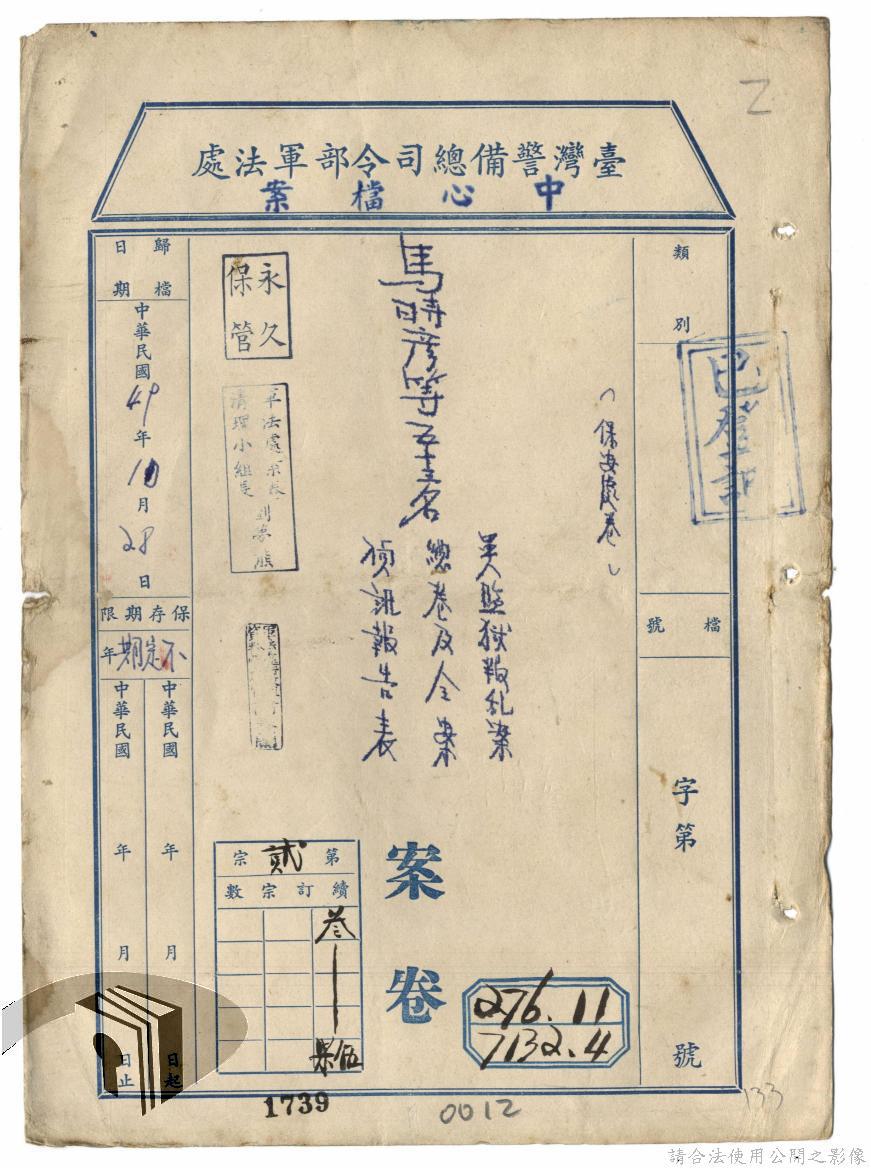 乙
臺灣警備總司令部軍法處
中心檔案
類別
已登記
檔號
字第
號
(保安處卷)
馬時彥等五十三名
叛乱案
總卷及全案
偵訊報告表
案卷
永久
保管
軍法處
清理小組
第貳宗
續訂宗數
叁
伍
歸檔日期
中華民國49年10月28日
保存期限
不定期年
中華民國 年 月 日起
中華民國 年 月 日止
276.11
7132.4
1739
0012
133
請合法使用公開之影像